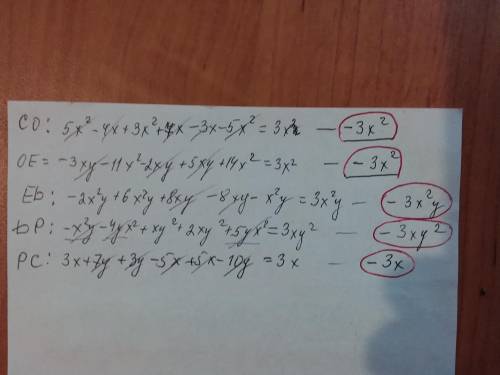 CO: 5x² - 4x + 3x² + 4x - 3x - 5x² = 3x² — -3x²
OE = -3xy - 11x² - 2xy + 5xy + 14x² = 3x² — -3x²
Eb: -2x²y + 6x²y + 8xy - 8xy - x²y = 3x²y — -3x²y
bP: -x²y - 4yx² + xy² + 2xy² + 5yx² = 3xy² — -3xy²
PC: 3x + 7y + 3y - 5x + 5x - 10y = 3x — -3x